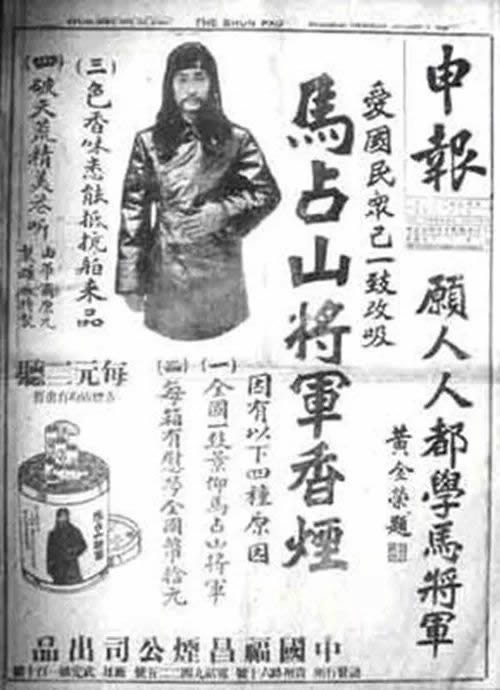 THE SHUN PAO
申報
願人人都學馬將軍
黃金榮題
愛國民眾已一致改吸
馬占山將軍香煙
因有以下四種原因
(一)全國一致景仰馬占山將軍
(二)每箱有慰勞金國幣拾元
(三)色香味悉能抵抗舶來品
(四)破天荒精美卷听
每元三聽
各煙店均有出售
中國福昌煙公司出品